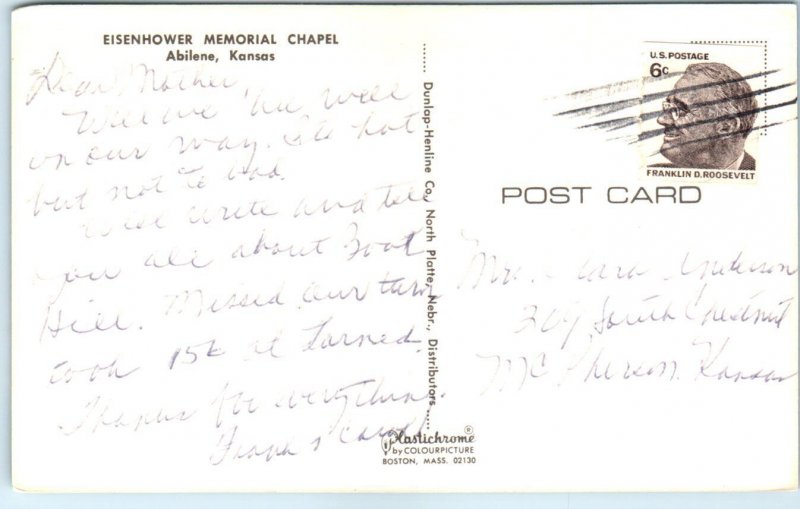 EISENHOWER MEMORIAL CHAPEL
Abilene, Kansas
Dear Mother,
Well we are well
on our way. Its hot
but not to bad.
Well write and tell
you all about Boot
Hill. Missed our turn
took 156 at Larned.
Thanks for everything.
Carol
Dunlap-Henline Co., North Platte, Nebr., Distributors
Plastichrome®
by COLOURPICTURE
BOSTON, MASS. 02130
U.S. POSTAGE
6c
FRANKLIN D. ROOSEVELT
POST CARD
Mrs. Anderson
South Chestnut
McPherson, Kansas